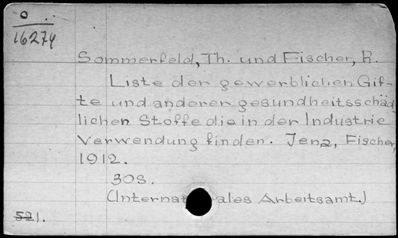 o
16274
Sommerfeld, Th. und Fischer, R.
Liste der gewerblichen Gif-
te und anderer gesundheitsschäd
lichen Stoffe die in der Industrie
Verwendung finden. Jena, Fischer,
1912.
30s.
(Internat ales Arbeitsamt.)
521.